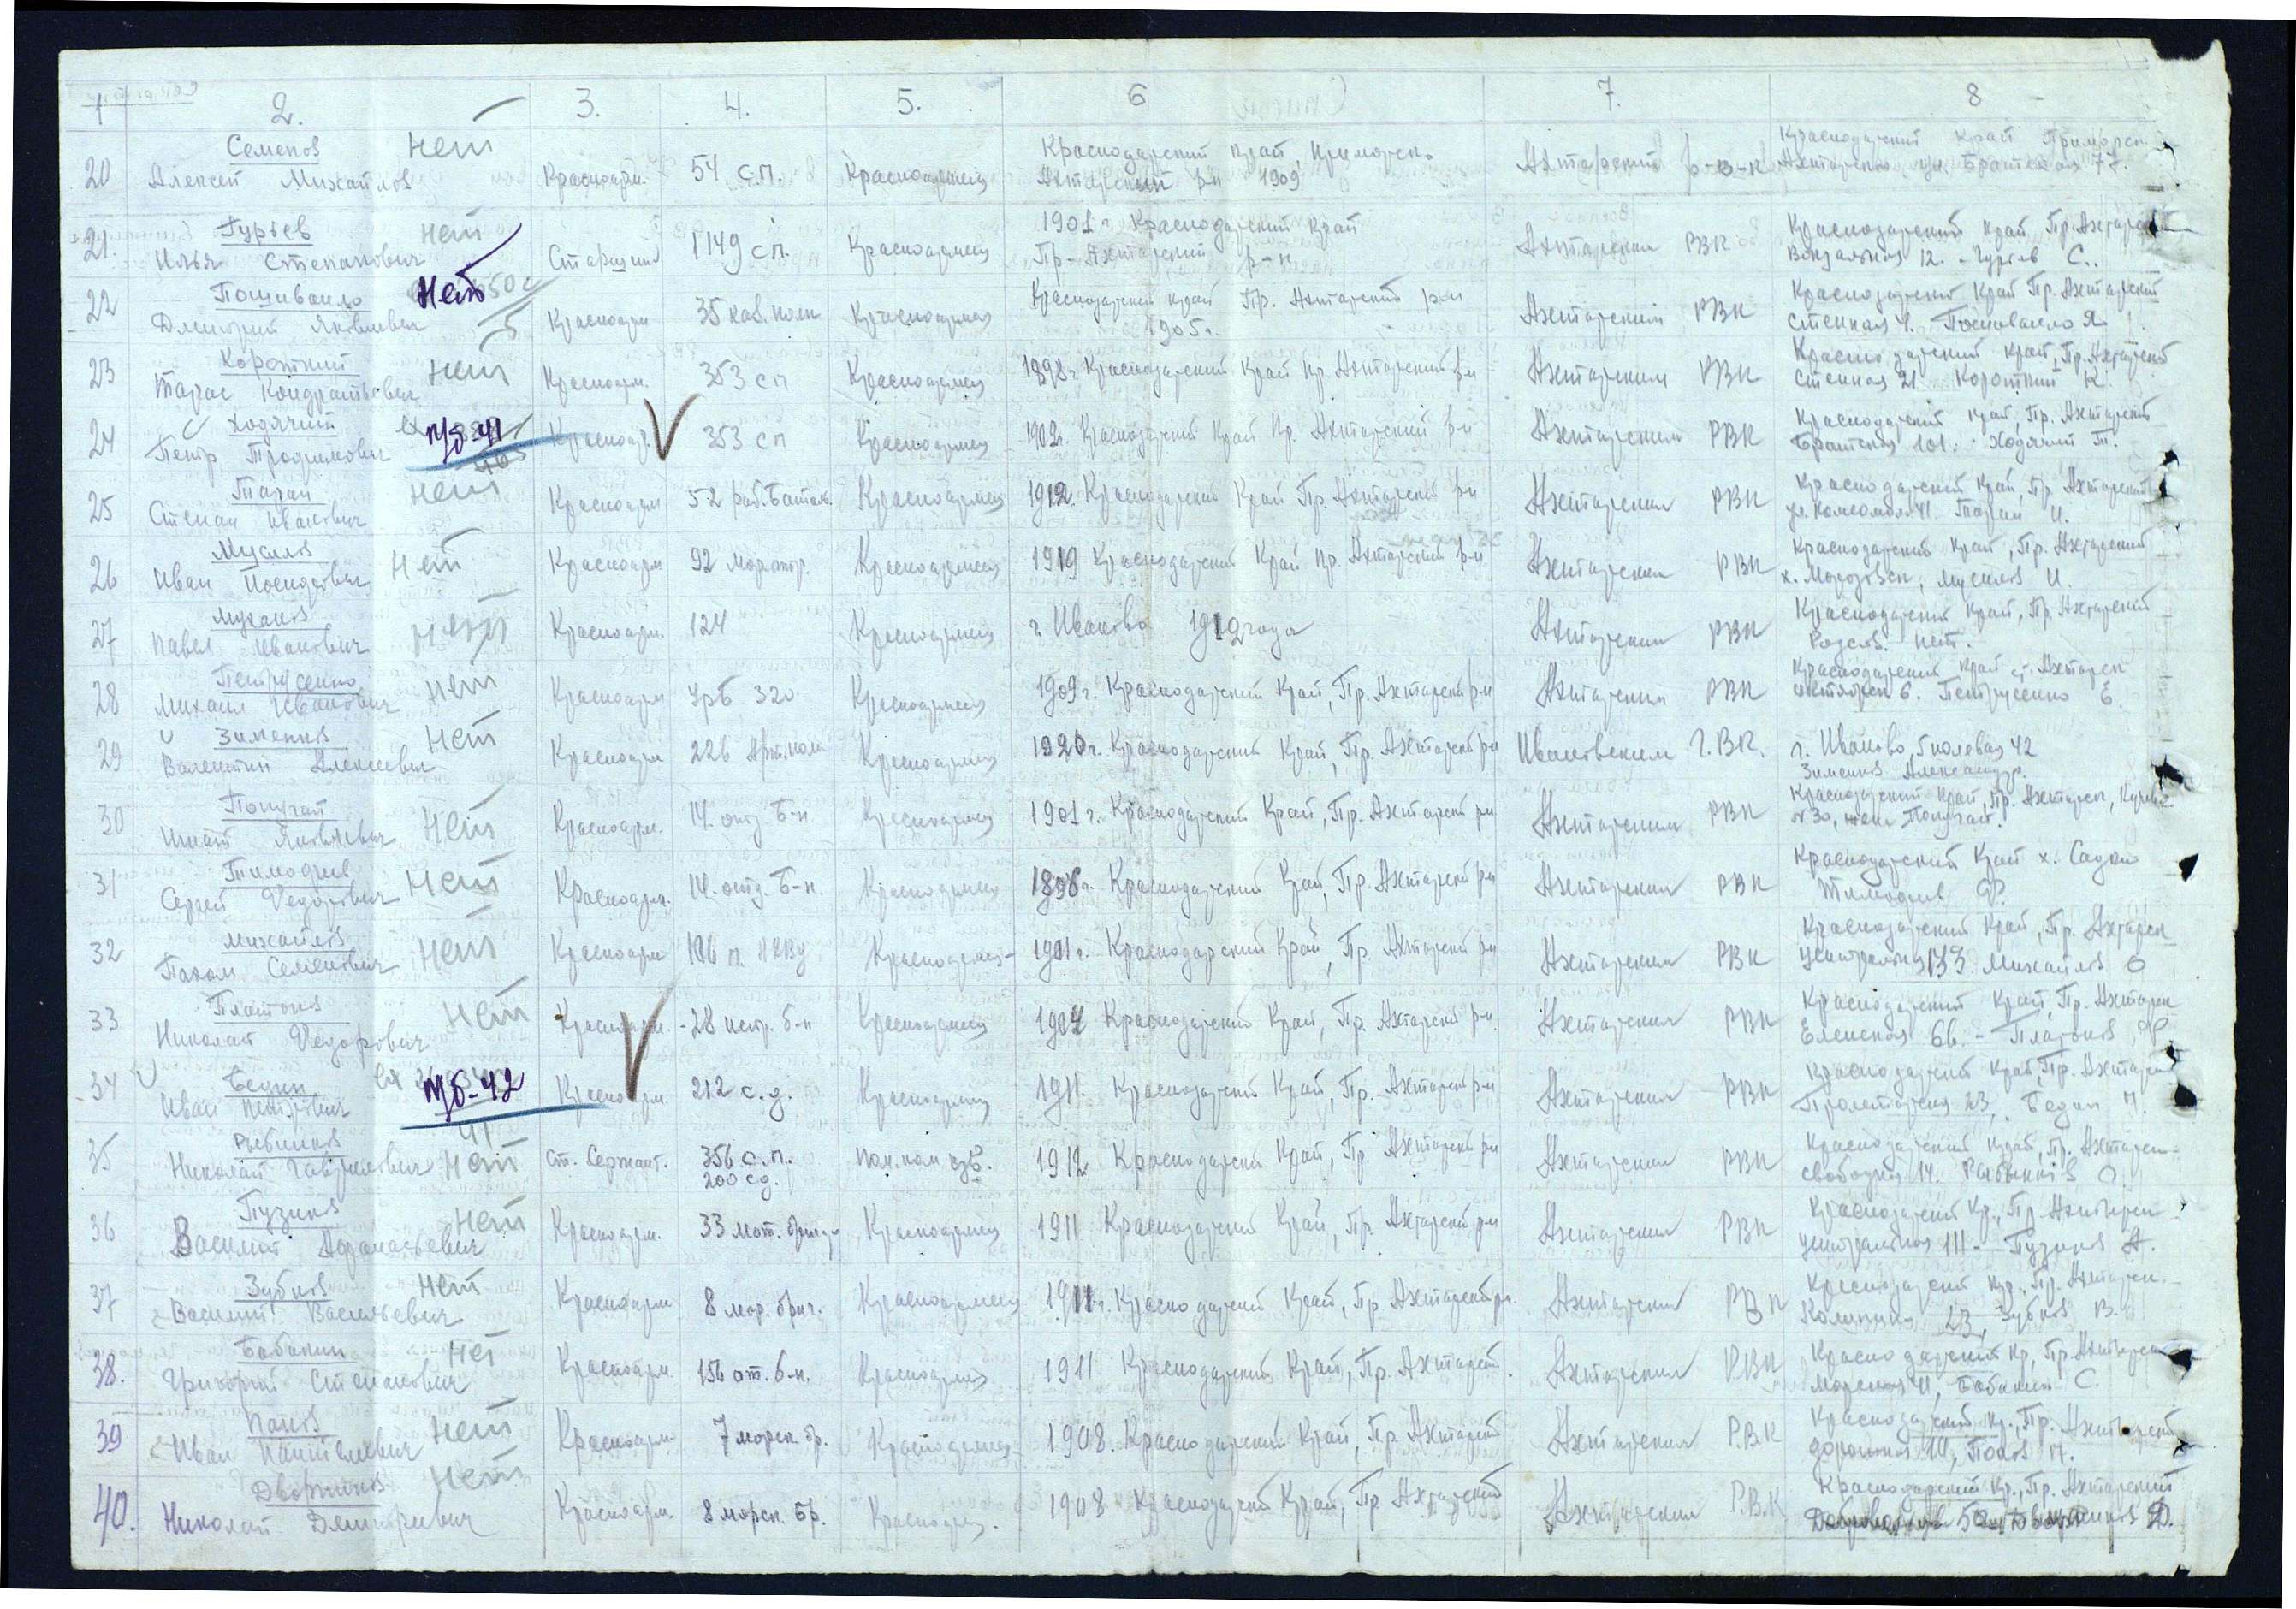 1 2. 3. 4. 5. 6 7. 8
20 Семенов нет Красноарм. 54 с.п. Красноармеец Краснодарский край, Приморско Ахтарский р-в-к Краснодарский край Приморск
Алексей Михайлов Ахтарский р-н 1909 Ахтарско ул. Братская 77.
21. Гурьев нет Старшина 1149 сп. Красноармеец 1901 г. Краснодарский край Ахтарским РВК Краснодарский край, Пр. Ахтарский
Илья Степанович Пр-Ахтарский р-н Вокзальная 12. - Гурьев С.
22 Пошивайло Нет Красноарм 35 кав. полк Красноармеец Краснодарский край Пр. Ахтарский р-н Ахтарским РВК Краснодарский Край Пр. Ахтарский
Дмитрий Яковлевич 1905 г. Степная 4. Пошивайло Я
23 Короткий нет Красноарм. 353 сп Красноармеец 1898 г Краснодарский Край Пр. Ахтарский р-н Ахтарским РВК Краснодарский край, Пр. Ахтарский
Тарас Кондратьевич Степная 21. Короткий К.
24 Ходячий п/б-41 Красноар. 353 сп Красноармеец 1902 г. Краснодарский Край Пр. Ахтарский р-н Ахтарским РВК Краснодарский край, Пр. Ахтарский
Петр Трофимович Братская 101. Ходячий Т.
25 Таран нет Красноарм 52 раб. Батал. Красноармеец 1912. Краснодарский Край Пр. Ахтарский р-н Ахтарским РВК Краснодарский Край, Пр. Ахтарский
Степан Иванович ул. Комсомол 41. Таран И.
26 Мусиев нет Красноарм 92 Мор. Красноармеец 1919 Краснодарский Край Пр. Ахтарский р-н Ахтарским РВК Краснодарский Край, Пр. Ахтарский
Иван Иосифович И.
27 Муханов нет Красноарм. 124 Красноармеец г. Иваново 1912 года Ахтарским РВК Краснодарский Край, Пр. Ахтарский
Павел Иванович Родств. нет.
28 Петрусенко нет Красноарм 320 Красноармеец 1909 г. Краснодарский Край, Пр. Ахтарский р-н Ахтарским РВК Краснодарский Край Ахтарск
Михаил Иванович 6. Петрусенко Е.
29 Зименков нет Красноарм 226 Арт. полк Красноармеец 1920 г. Краснодарский Край, Пр. Ахтарский р-н Ивановским Г.В.К. г. Иваново, 42
Валентин Алексеевич Зименков Александр.
30 Попугай нет Красноарм. 14. отд. б-н Красноармеец 1901 г. Краснодарский Край, Пр. Ахтарский р-н Ахтарским РВК Краснодарский Край, Пр. Ахтарск,
Игнат Яковлевич № 30, жена Попугай.
31 Тимофеев нет Красноарм. 14. отд. Б-н. Красноармеец 1898 г. Краснодарский Край, Пр. Ахтарский р-н Ахтарским РВК Краснодарский Край х. Садки
Сергей Федорович Тимофеев Ф.
32 Михайлов нет Красноарм 106 п. НКВД Красноармеец 1901 г. Краснодарский Край, Пр. Ахтарский р-н Ахтарским РВК Краснодарский Край, Пр. Ахтарск
Пахом Семенович Центральная 133 Михайлов О
33 Платонов нет Красноарм. 28 б-н Красноармеец 1904 Краснодарский Край, Пр. Ахтарский р-н Ахтарским РВК Краснодарский Край, Пр. Ахтарск
Николай Федорович 66. - Платонов Ф.
34 Бедин п/б-42 Красноарм. 212 с.д. Красноармеец 1911. Краснодарский Край, Пр. Ахтарский р-н Ахтарским РВК Краснодарский Край, Пр. Ахтарский
Иван Петрович Пролетарская 23, Бедин П.
35 Рыбников нет Ст. Сержант. 356 с.п. пом. ком взв. 1912 Краснодарский Край, Пр. Ахтарский р-н Ахтарским РВК Краснодарский Край, Пр. Ахтарск-
Николай Гаврилович 200 сд. Свободная 14. Рыбников
36 Пузиков нет Красноарм. 33 мот. бриг. Красноармеец 1911 Краснодарский Край, Пр. Ахтарский р-н Ахтарским РВК Краснодарский Кр., Пр. Ахтарск
Василий Афанасьевич Центральная 111 - Пузиков А.
37 Зубков нет Красноарм 8 мор. бриг. Красноармеец 1911 г. Краснодарский Край, Пр. Ахтарский р-н. Ахтарским РВК Краснодарский Кр., Пр. Ахтарск.
Василий Васильевич Калинина 23, Зубков В.
38. Бабакин нет Красноарм. 156 от. б-н. Красноармеец 1911 Краснодарский Край, Пр. Ахтарский. Ахтарским РВК Краснодарский Кр, Пр. Ахтарск
Григорий Степанович Морская 41, Бабакин С.
39 Попов нет Красноарм. 7 морск. бр. Красноармеец 1908. Краснодарский Край, Пр. Ахтарский Ахтарским Р.В.К Краснодарский Кр., Пр. Ахтарский
Иван Пантелеевич 111, Попов П.
40. Дворников нет Красноарм. 8 морск. Бр. Красноарм. 1908 Краснодарский Край, Пр. Ахтарский Ахтарским Р.В.К Краснодарский Кр., Пр. Ахтарский
Николай Дмитриевич Д.